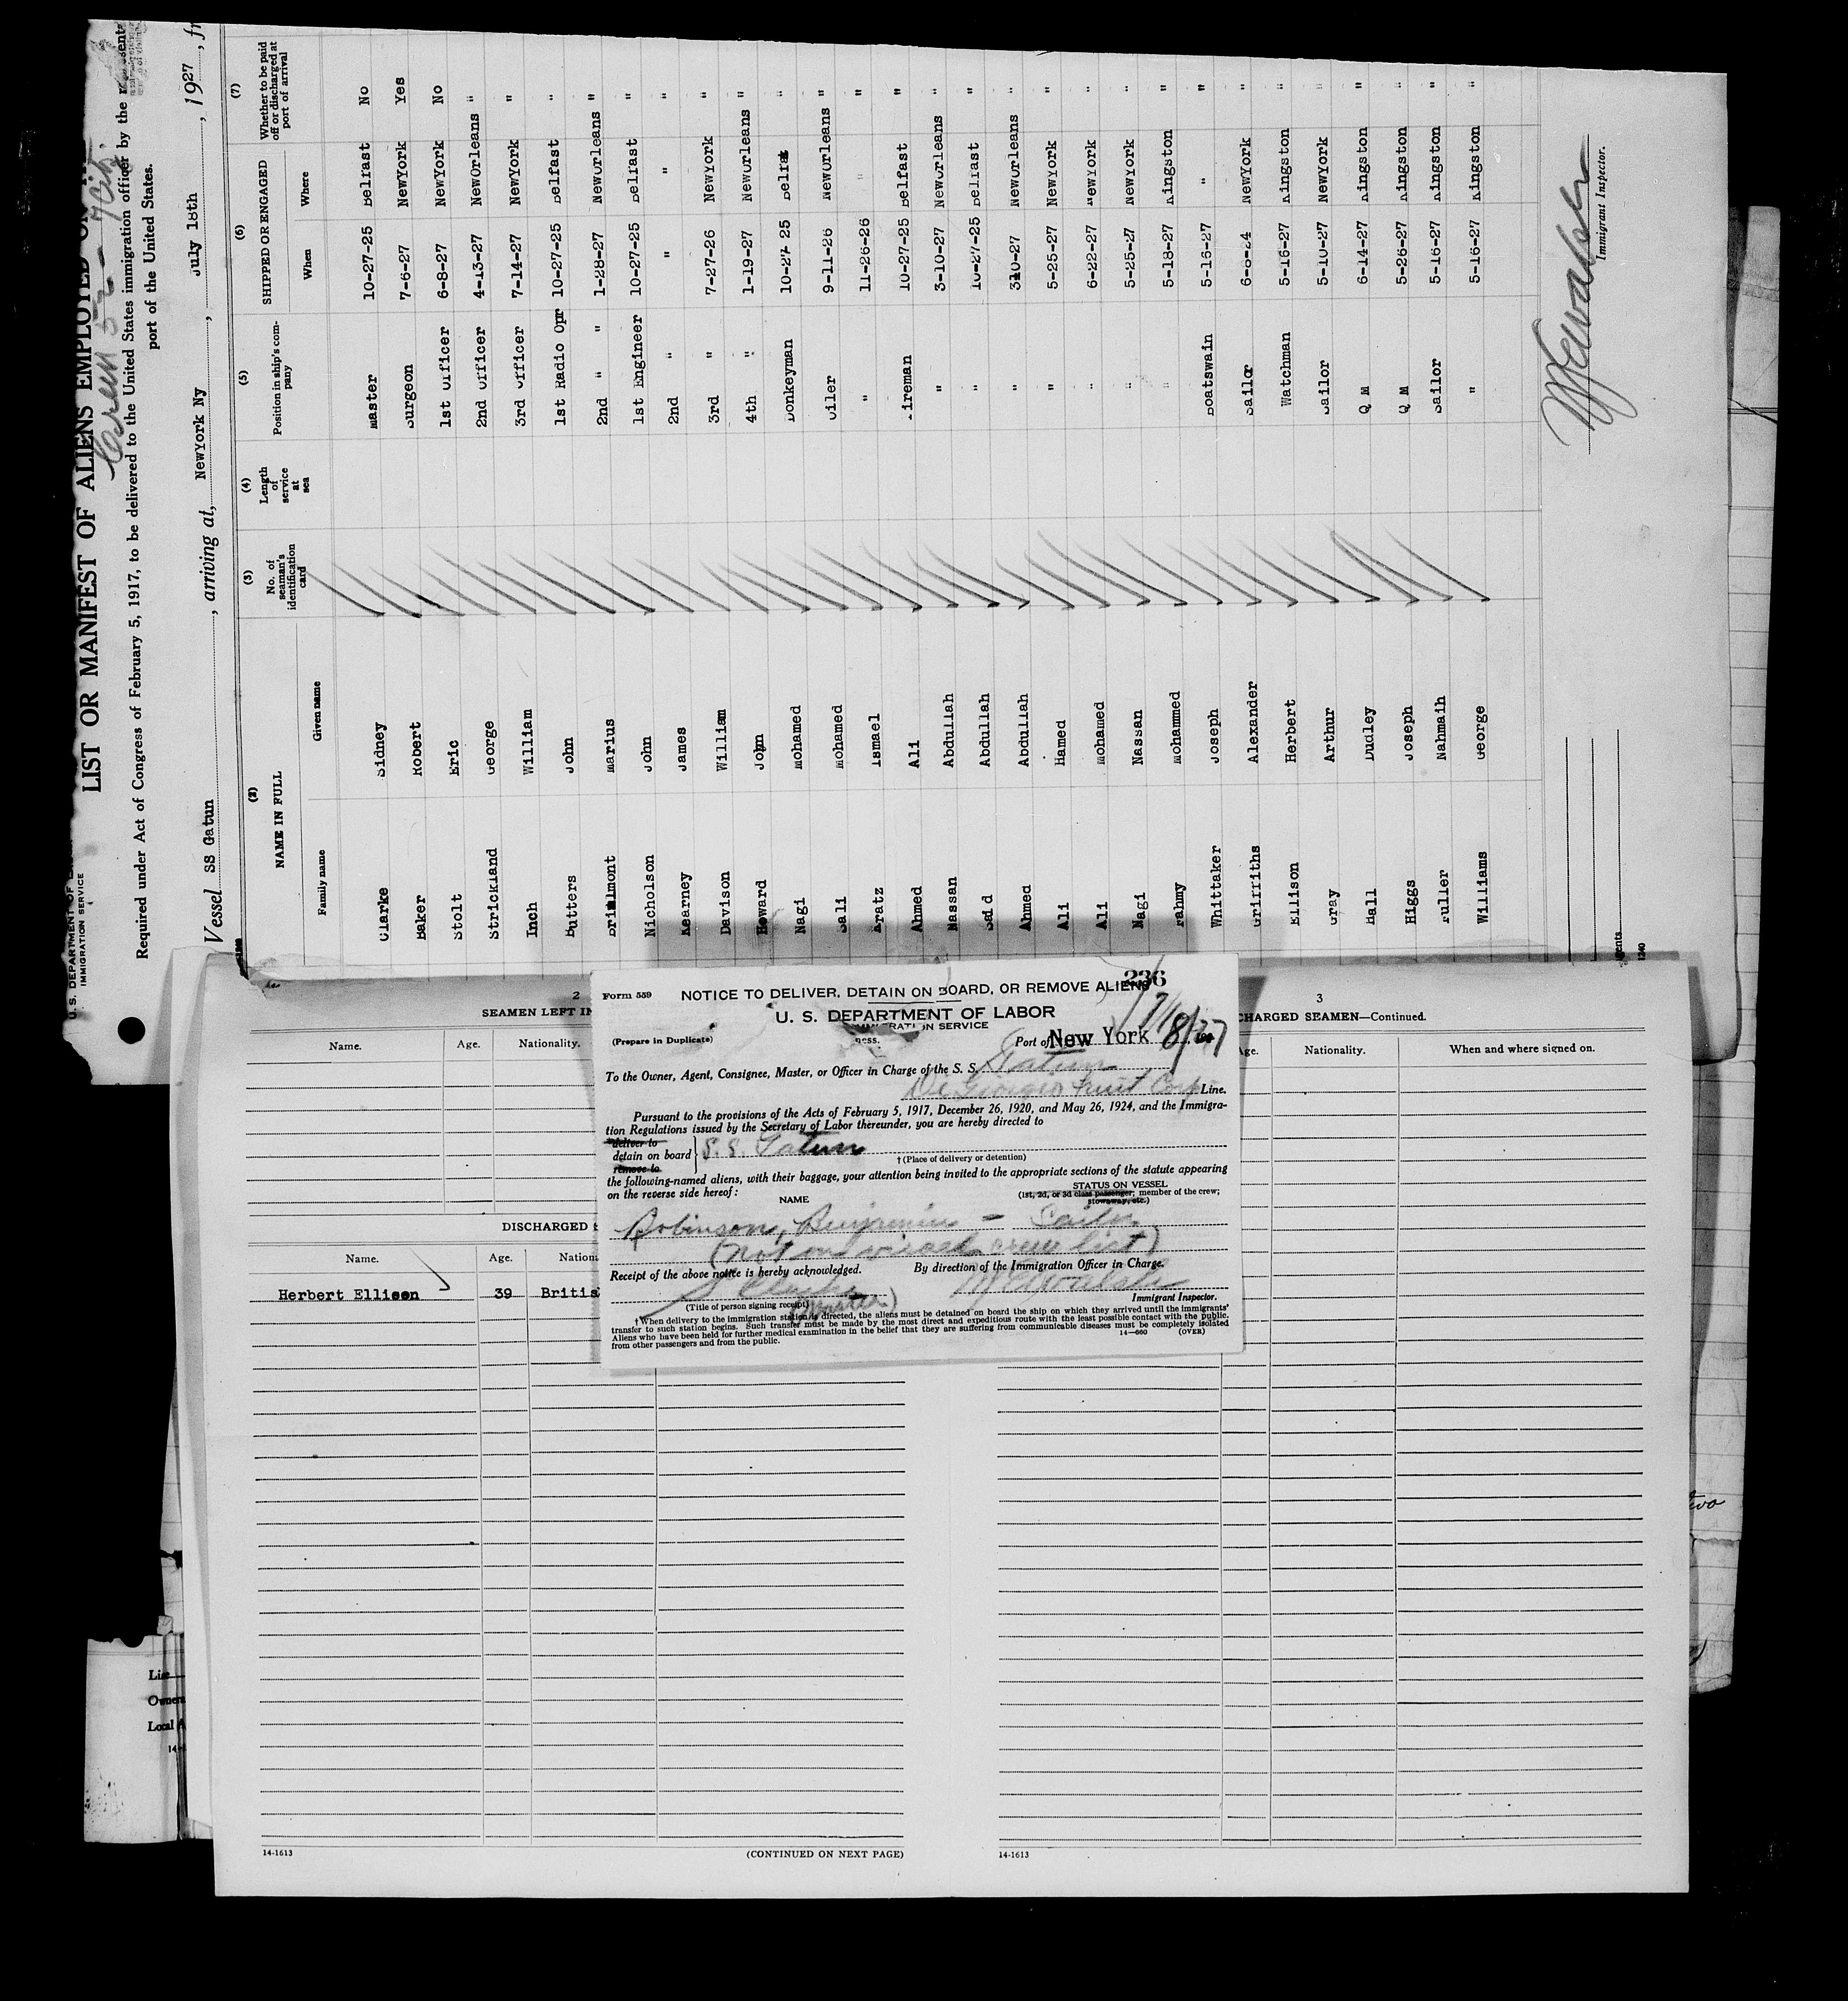 U. S. DEPARTMENT OF
IMMIGRATION SERVICE
LIST OR MANIFEST OF ALIENS EMPLOYED ON
Required under Act of Congress of February 5, 1917, to be delivered to the United States immigration officer by the
port of the United States.
Vessel SS Gatun, arriving at, NewYork Ny, July 18th, 1927, fr
(2) (3) (4) (5) (6) (7)
NAME IN FULL No. of seaman's identification card Length of service at sea Position in ship's company SHIPPED OR ENGAGED Whether to be paid off or discharged at port of arrival
Family name Given name When Where
Clarke Sidney Master 10-27-25 Belfast No
Baker Robert Surgeon 7-6-27 NewYork Yes
Stolt Eric 1st Officer 6-8-27 NewYork No
Strickland George 2nd Officer 4-13-27 NewOrleans "
Inch William 3rd Officer 7-14-27 NewYork "
Butters John 1st Radio Opr 10-27-25 Belfast "
Marius 2nd " " 1-28-27 NewOrleans "
Nicholson John 1st Engineer 10-27-25 Belfast "
Kearney James 2nd " " " "
Davison William 3rd " 7-27-26 NewYork "
Howard John 4th " 1-19-27 NewOrleans "
Nagi Mohamed Donkeyman 10-27-25 "
Sali Mohamed Oiler 9-11-26 NewOrleans "
Bratz Ismael " 11-26-26 " "
Ahmed Ali Fireman 10-27-25 Belfast "
Nassan Abdullah " 3-10-27 NewOrleans "
Said Abdullah " 10-27-25 Belfast "
Ahmed Abdullah " 310-27 NewOrleans "
Ali Hamed " 5-25-27 NewYork "
Ali Mohamed " 6-22-27 NewYork "
Nagi Nassan " 5-25-27 NewYork "
Frahmy Mohammed " 5-18-27 Kingston "
Whittaker Joseph Boatswain 5-16-27 " "
Griffiths Alexander Sailor 6-8-24 NewYork "
Ellison Herbert Watchman 5-16-27 Kingston "
Gray Arthur Sailor 5-10-27 NewYork "
Hall Dudley Q M 6-14-27 Kingston "
Higgs Joseph Q M 5-26-27 Kingston "
Fuller Nahmaih Sailor 5-16-27 Kingston "
Williams George " 5-16-27 Kingston "
Immigrant Inspector.
2
SEAMEN LEFT IN
Name. Age. Nationality.
DISCHARGED
Name. Age. Nation
Herbert Ellison 39 Britis
14-1613 (CONTINUED ON NEXT PAGE)
236
Form 559 NOTICE TO DELIVER, DETAIN ON BOARD, OR REMOVE ALIENS
U. S. DEPARTMENT OF LABOR
IMMIGRATION SERVICE
(Prepare in Duplicate)
Port of New York 7/18/27
To the Owner, Agent, Consignee, Master, or Officer in Charge of the S. S. Gatun
Di Giorgio Fruit Corp Line.
Pursuant to the provisions of the Acts of February 5, 1917, December 26, 1920, and May 26, 1924, and the Immigra-
tion Regulations issued by the Secretary of Labor thereunder, you are hereby directed to
deliver to
detain on board S.S. Gatun
remove to
†(Place of delivery or detention)
the following-named aliens, with their baggage, your attention being invited to the appropriate sections of the statute appearing
on the reverse side hereof:
NAME
STATUS ON VESSEL
(1st, 2d, or 3d class passenger; member of the crew;
stowaway, etc.)
Robinson, Benjamin - Sailor
(not on visaed crew list)
Receipt of the above notice is hereby acknowledged. By direction of the Immigration Officer in Charge.
S Clarke
(Master)
(Title of person signing receipt)
Immigrant Inspector.
†When delivery to the immigration station is directed, the aliens must be detained on board the ship on which they arrived until the immigrants'
transfer to such station begins. Such transfer must be made by the most direct and expeditious route with the least possible contact with the public.
Aliens who have been held for further medical examination in the belief that they are suffering from communicable diseases must be completely isolated
from other passengers and from the public.
14—660 (OVER)
3
CHARGED SEAMEN—Continued.
Age. Nationality. When and where signed on.
14-1613
Owners
Local A